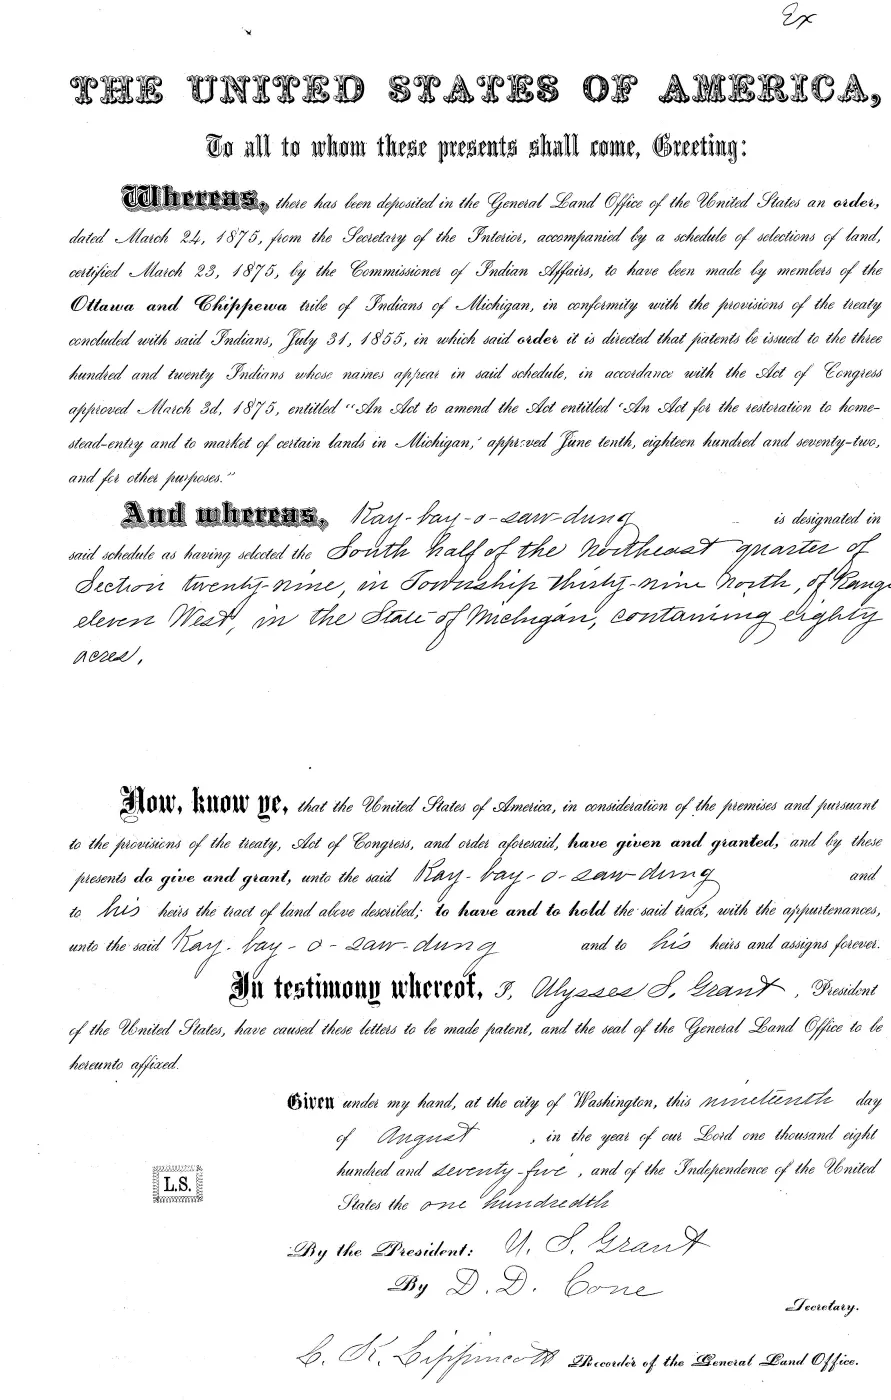 Ex
THE UNITED STATES OF AMERICA,
To all to whom these presents shall come, Greeting:
Whereas, there has been deposited in the General Land Office of the United States an order,
dated March 24, 1875, from the Secretary of the Interior, accompanied by a schedule of selections of land,
certified March 23, 1875, by the Commissioner of Indian Affairs, to have been made by members of the
Ottawa and Chippewa tribe of Indians of Michigan, in conformity with the provisions of the treaty
concluded with said Indians, July 31, 1855, in which said order it is directed that patents be issued to the three
hundred and twenty Indians whose names appear in said schedule, in accordance with the Act of Congress
approved March 3d, 1875, entitled "An Act to amend the Act entitled 'An Act for the restoration to home-
stead-entry and to market of certain lands in Michigan,' approved June tenth, eighteen hundred and seventy-two,
and for other purposes."
And whereas, Kay-bay-o-saw-dung is designated in
said schedule as having selected the South half of the Northeast quarter of
Section twenty-nine, in Township thirty-nine North, of Range
eleven West, in the State of Michigan, containing eighty
acres.
Now, know ye, that the United States of America, in consideration of the premises and pursuant
to the provisions of the treaty, Act of Congress, and order aforesaid, have given and granted, and by these
presents do give and grant, unto the said Kay-bay-o-saw-dung and
to his heirs the tract of land above described; to have and to hold the said tract, with the appurtenances,
unto the said Kay-bay-o-saw-dung and to his heirs and assigns forever.
In testimony whereof, I, Ulysses S. Grant, President
of the United States, have caused these letters to be made patent, and the seal of the General Land Office to be
hereunto affixed.
Given under my hand, at the city of Washington, this nineteenth day
of August, in the year of our Lord one thousand eight
hundred and seventy-five, and of the Independence of the United
L.S.
States the one hundredth
By the President: U. S. Grant
By D. D. Cone
Secretary.
L. K. Lippincott Recorder of the General Land Office.